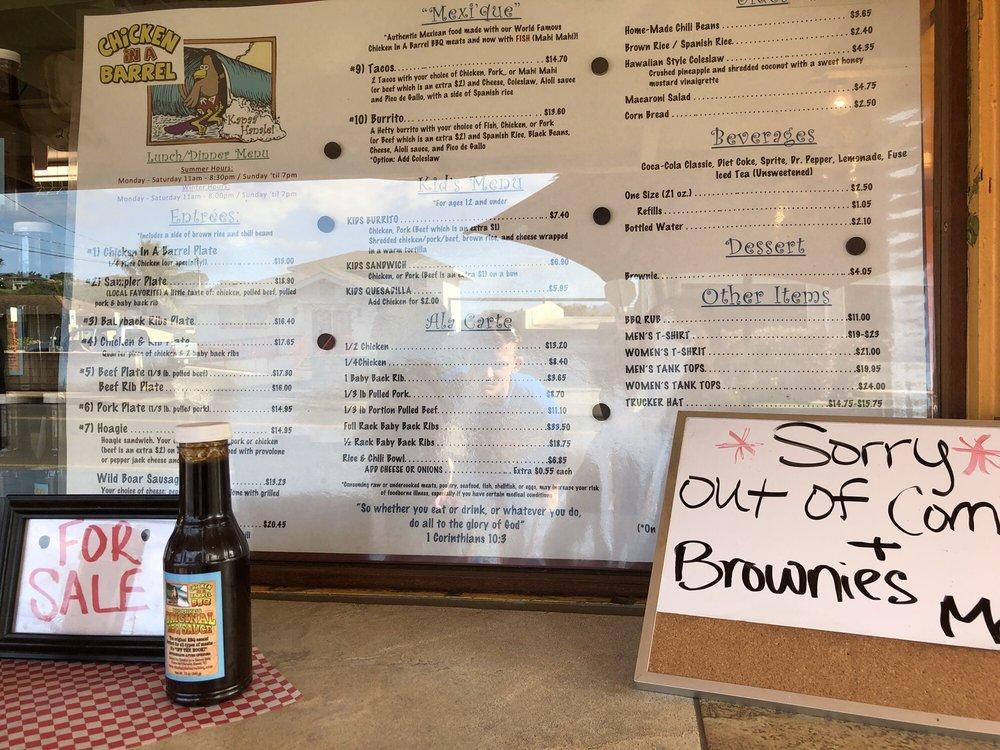 CHICKEN
IN A
BARREL
Kapaa
Hanalei
Lunch/Dinner Menu
Summer Hours:
Monday - Saturday 11am - 8:30pm / Sunday 'til 7pm
Winter Hours:
Monday - Saturday 11am - 8:00pm / Sunday 'til 7pm
Entrées:
*Includes a side of brown rice and chili beans
#1) Chicken In A Barrel Plate
1/4 Pure Chicken (our specialty!) $15.00
#2) Sampler Plate $18.90
(LOCAL FAVORITE) A little taste of: chicken, pulled beef, pulled
pork & baby back rib
#3) Babyback Ribs Plate $16.40
#4) Chicken & Rib Plate $17.65
Quarter piece of chicken & 2 baby back ribs
#5) Beef Plate (1/3 lb. pulled beef) $17.80
Beef Rib Plate $16.00
#6) Pork Plate (1/3 lb. pulled pork) $14.95
#7) Hoagie $14.95
Hoagie sandwich. Your pork or chicken
(beef is an extra $2) on with provolone
or pepper jack cheese and
Wild Boar Sausag $13.23
Your choice of cheese: with grilled
$20.45
"Mexi'que"
*Authentic Mexican food made with our World Famous
Chicken In A Barrel BBQ meats and now with FISH (Mahi Mahi)!
#9) Tacos $14.70
2 Tacos with your choice of Chicken, Pork, or Mahi Mahi
(or beef which is an extra $2) and Cheese, Coleslaw, Aioli sauce
and Pico de Gallo, with a side of Spanish rice
#10) Burrito $13.60
A Hefty burrito with your choice of Fish, Chicken, or Pork
(or Beef which is an extra $2) and Spanish Rice, Black Beans,
Cheese, Aioli sauce, and Pico de Gallo
*Option: Add Coleslaw
Kid's Menu
*For ages 12 and under
KIDS BURRITO $7.40
Chicken, Pork (Beef which is an extra $1)
Shredded chicken/pork/beef, brown rice, and cheese wrapped
in a warm tortilla
KIDS SANDWICH $6.90
Chicken, or Pork (Beef is an extra $1) on a bun
KIDS QUESADILLA $5.95
Add Chicken for $2.00
Ala Carte
1/2 Chicken $13.20
1/4Chicken $8.40
1 Baby Back Rib $3.65
1/3 lb Pulled Pork $8.70
1/3 lb Portion Pulled Beef $11.10
Full Rack Baby Back Ribs $33.50
½ Rack Baby Back Ribs $18.75
Rice & Chili Bowl $6.85
ADD CHEESE OR ONIONS Extra $0.55 each
*Consuming raw or undercooked meats, poultry, seafood, fish, shellfish, or eggs, may increase your risk
of foodborne illness, especially if you have certain medical conditions
"So whether you eat or drink, or whatever you do,
do all to the glory of God"
1 Corinthians 10:3
Home-Made Chili Beans $3.65
Brown Rice / Spanish Rice $2.40
Hawaiian Style Coleslaw $4.35
Crushed pineapple and shredded coconut with a sweet honey
mustard vinaigrette
Macaroni Salad $4.75
Corn Bread $2.50
Beverages
Coca-Cola Classic, Diet Coke, Sprite, Dr. Pepper, Lemonade, Fuse
Iced Tea (Unsweetened)
One Size (21 oz.) $2.50
Refills $1.05
Bottled Water $2.10
Dessert
Brownie $4.05
Other Items
BBQ RUB $11.00
MEN'S T-SHIRT $19-$23
WOMEN'S T-SHRIT $21.00
MEN'S TANK TOPS $19.95
WOMEN'S TANK TOPS $24.00
TRUCKER HAT $14.75-$15.75
(*On
FOR
SALE
CHICKEN
BARREL
BBQ
ORIGINAL
BBQ SAUCE
The original BBQ sauce
"OFF THE HOOK!"
*Sorry*
out of Corn
+
Brownies
M